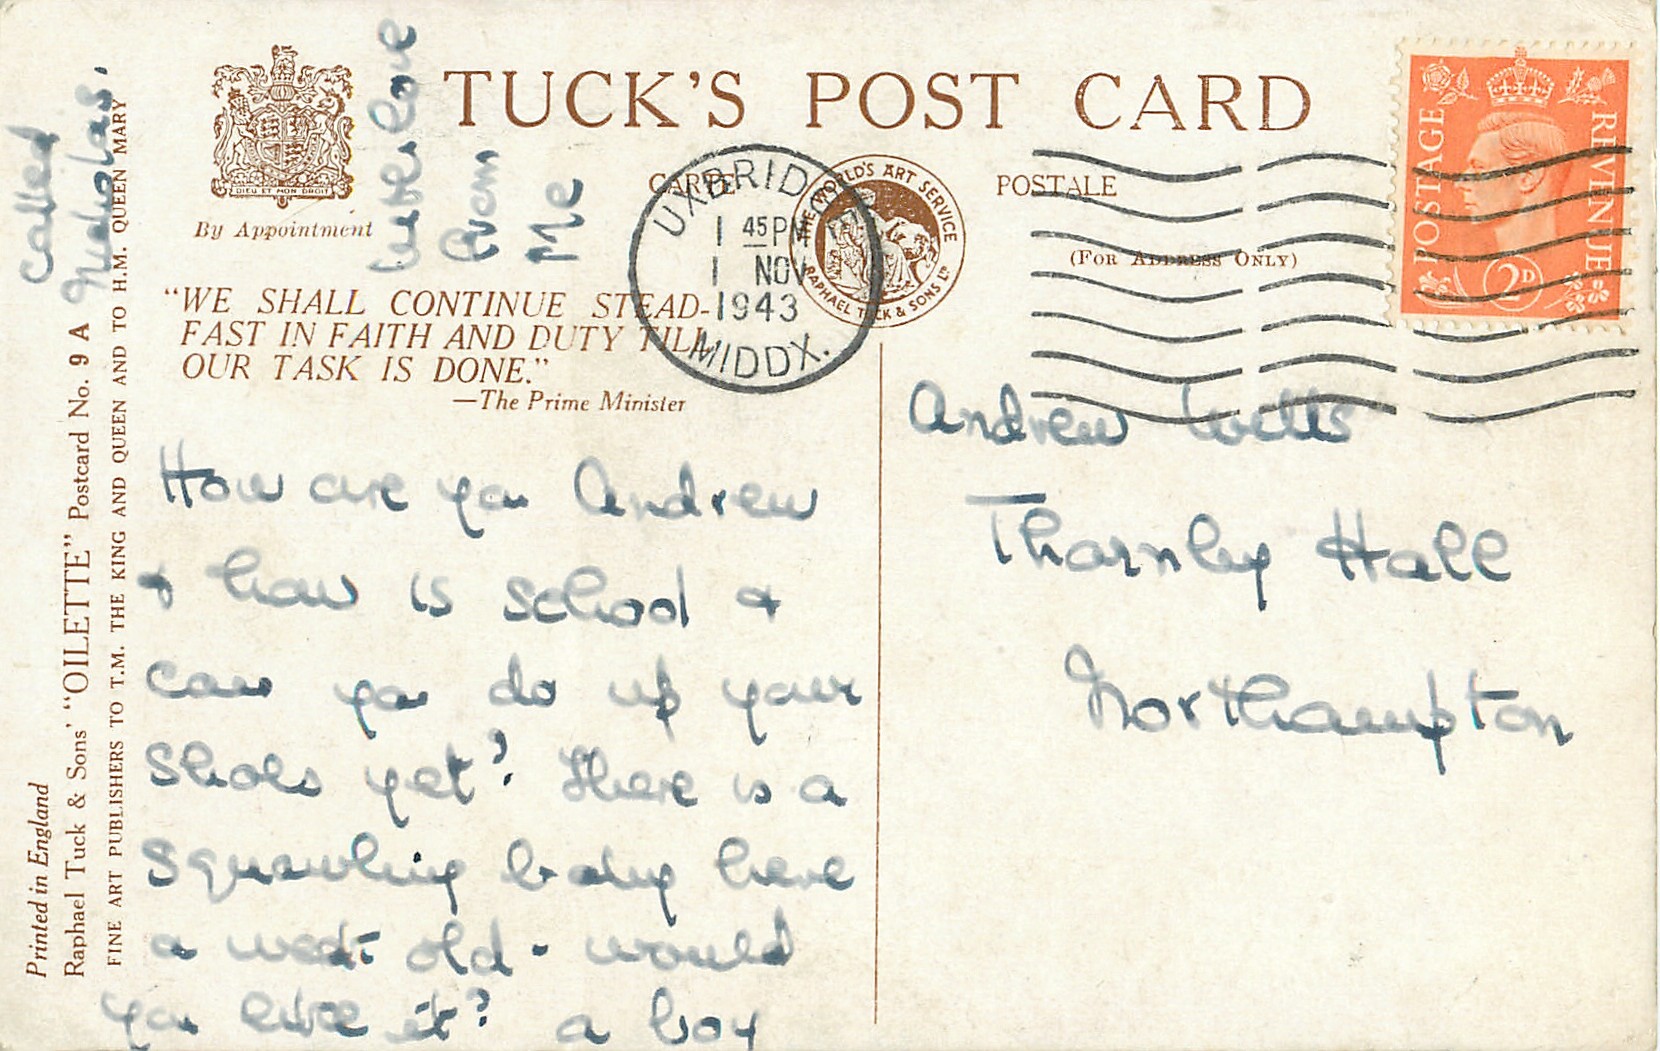 TUCK'S POST CARD
DIEU ET MON DROIT
By Appointment
CARTE POSTALE
(FOR ADDRESS ONLY)
THE WORLD'S ART SERVICE
RAPHAEL TUCK & SONS LTD
UXBRIDGE
1 45 PM
1 NOV
1943
MIDDX.
POSTAGE REVENUE
2D
"WE SHALL CONTINUE STEAD-
FAST IN FAITH AND DUTY TILL
OUR TASK IS DONE."
—The Prime Minister
How are you Andrew
& how is school &
can you do up your
shoes yet? There is a
squawling baby here
a week old - would
you like it? a boy
called
Nicholas.
with love
from
Me
Andrew Wells
Thornby Hall
Northampton
Printed in England
Raphael Tuck & Sons' "OILETTE" Postcard No. 9 A
FINE ART PUBLISHERS TO T.M. THE KING AND QUEEN AND TO H.M. QUEEN MARY